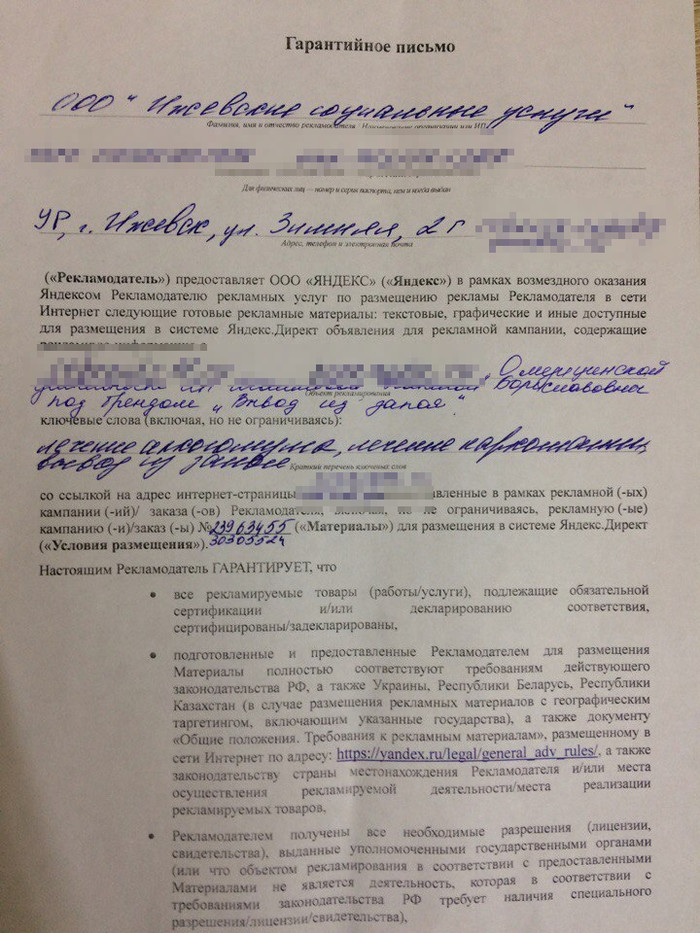 Гарантийное письмо
ООО "Ижевские социальные услуги"
Фамилия, имя и отчество рекламодателя / Наименование организации или ИП
Для физических лиц — номер и серия паспорта, кем и когда выдан
УР, г. Ижевск, ул. Зимняя, 2 г
Адрес, телефон и электронная почта
(«Рекламодатель») предоставляет ООО «ЯНДЕКС» («Яндекс») в рамках возмездного оказания
Яндексом Рекламодателю рекламных услуг по размещению рекламы Рекламодателя в сети
Интернет следующие готовые рекламные материалы: текстовые, графические и иные доступные
для размещения в системе Яндекс.Директ объявления для рекламной кампании, содержащие
О медицинской
Объект рекламирования
Борисововны
под брендом "Вывод из запоя".
ключевые слова (включая, но не ограничиваясь):
лечение алкоголизма, лечение наркомании,
вывод из запоя
Краткий перечень ключевых слов
со ссылкой на адрес интернет-страницы авленные в рамках рекламной (-ых)
кампании (-ий)/ заказа (-ов) Рекламодателя, включая, но не ограничиваясь, рекламную (-ые)
кампанию (-и)/заказ (-ы) №23963455 («Материалы») для размещения в системе Яндекс.Директ
(«Условия размещения»). 30305524
Настоящим Рекламодатель ГАРАНТИРУЕТ, что
• все рекламируемые товары (работы/услуги), подлежащие обязательной
сертификации и/или декларированию соответствия,
сертифицированы/задекларированы,
• подготовленные и предоставленные Рекламодателем для размещения
Материалы полностью соответствуют требованиям действующего
законодательства РФ, а также Украины, Республики Беларусь, Республики
Казахстан (в случае размещения рекламных материалов с географическим
таргетингом, включающим указанные государства), а также документу
«Общие положения. Требования к рекламным материалам», размещенному в
сети Интернет по адресу: https://yandex.ru/legal/general_adv_rules/, а также
законодательству страны местонахождения Рекламодателя и/или места
осуществления рекламируемой деятельности/места реализации
рекламируемых товаров,
• Рекламодателем получены все необходимые разрешения (лицензии,
свидетельства), выданные уполномоченными государственными органами
(или что объектом рекламирования в соответствии с предоставленными
Материалами не является деятельность, которая в соответствии с
требованиями законодательства РФ требует наличия специального
разрешения/лицензии/свидетельства),